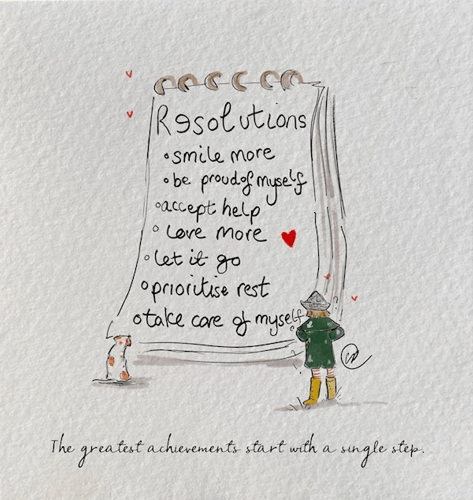 Resolutions
smile more
be proud of myself
accept help
Love more
let it go
prioritise rest
take care of myself
The greatest achievements start with a single step.